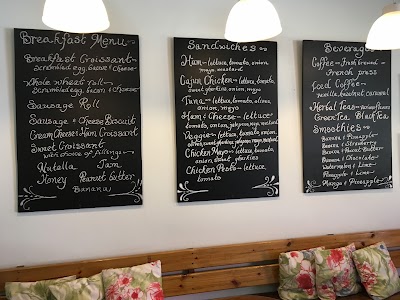 Breakfast Menu
Breakfast Croissant
Scrambled egg, bacon & Cheese
Whole wheat roll
Scrambled egg, bacon & Cheese
Sausage Roll
Sausage & Cheese Biscuit
Cream Cheese & Ham Croissant
Sweet Croissant
with choice of fillings
Nutella Jam
Honey Peanut butter
Banana
Sandwiches
Ham lettuce, tomato,
onion, mayo, mustard
Cajun Chicken lettuce, tomato,
sweet gherkins, onion, mayo
Tuna lettuce, tomato, olives,
onion, mayo
Ham & Cheese lettuce
tomato, onion, mayo
Veggie lettuce, tomato,
onion, sweet gherkins
Chicken Mayo lettuce, tomato,
onion, sweet gherkins
Chicken Pesto lettuce,
tomato
Beverages
Coffee Fresh Ground
French press
Iced Coffee
vanilla, hazelnut, caramel
Herbal Teas various flavours
Green Tea, Black Tea
Smoothies
Banana & Pineapple
Banana & Strawberry
Banana & Peanut Butter
Banana & Chocolate
Watermelon & Lime
Pineapple & Lime
Mango & Pineapple